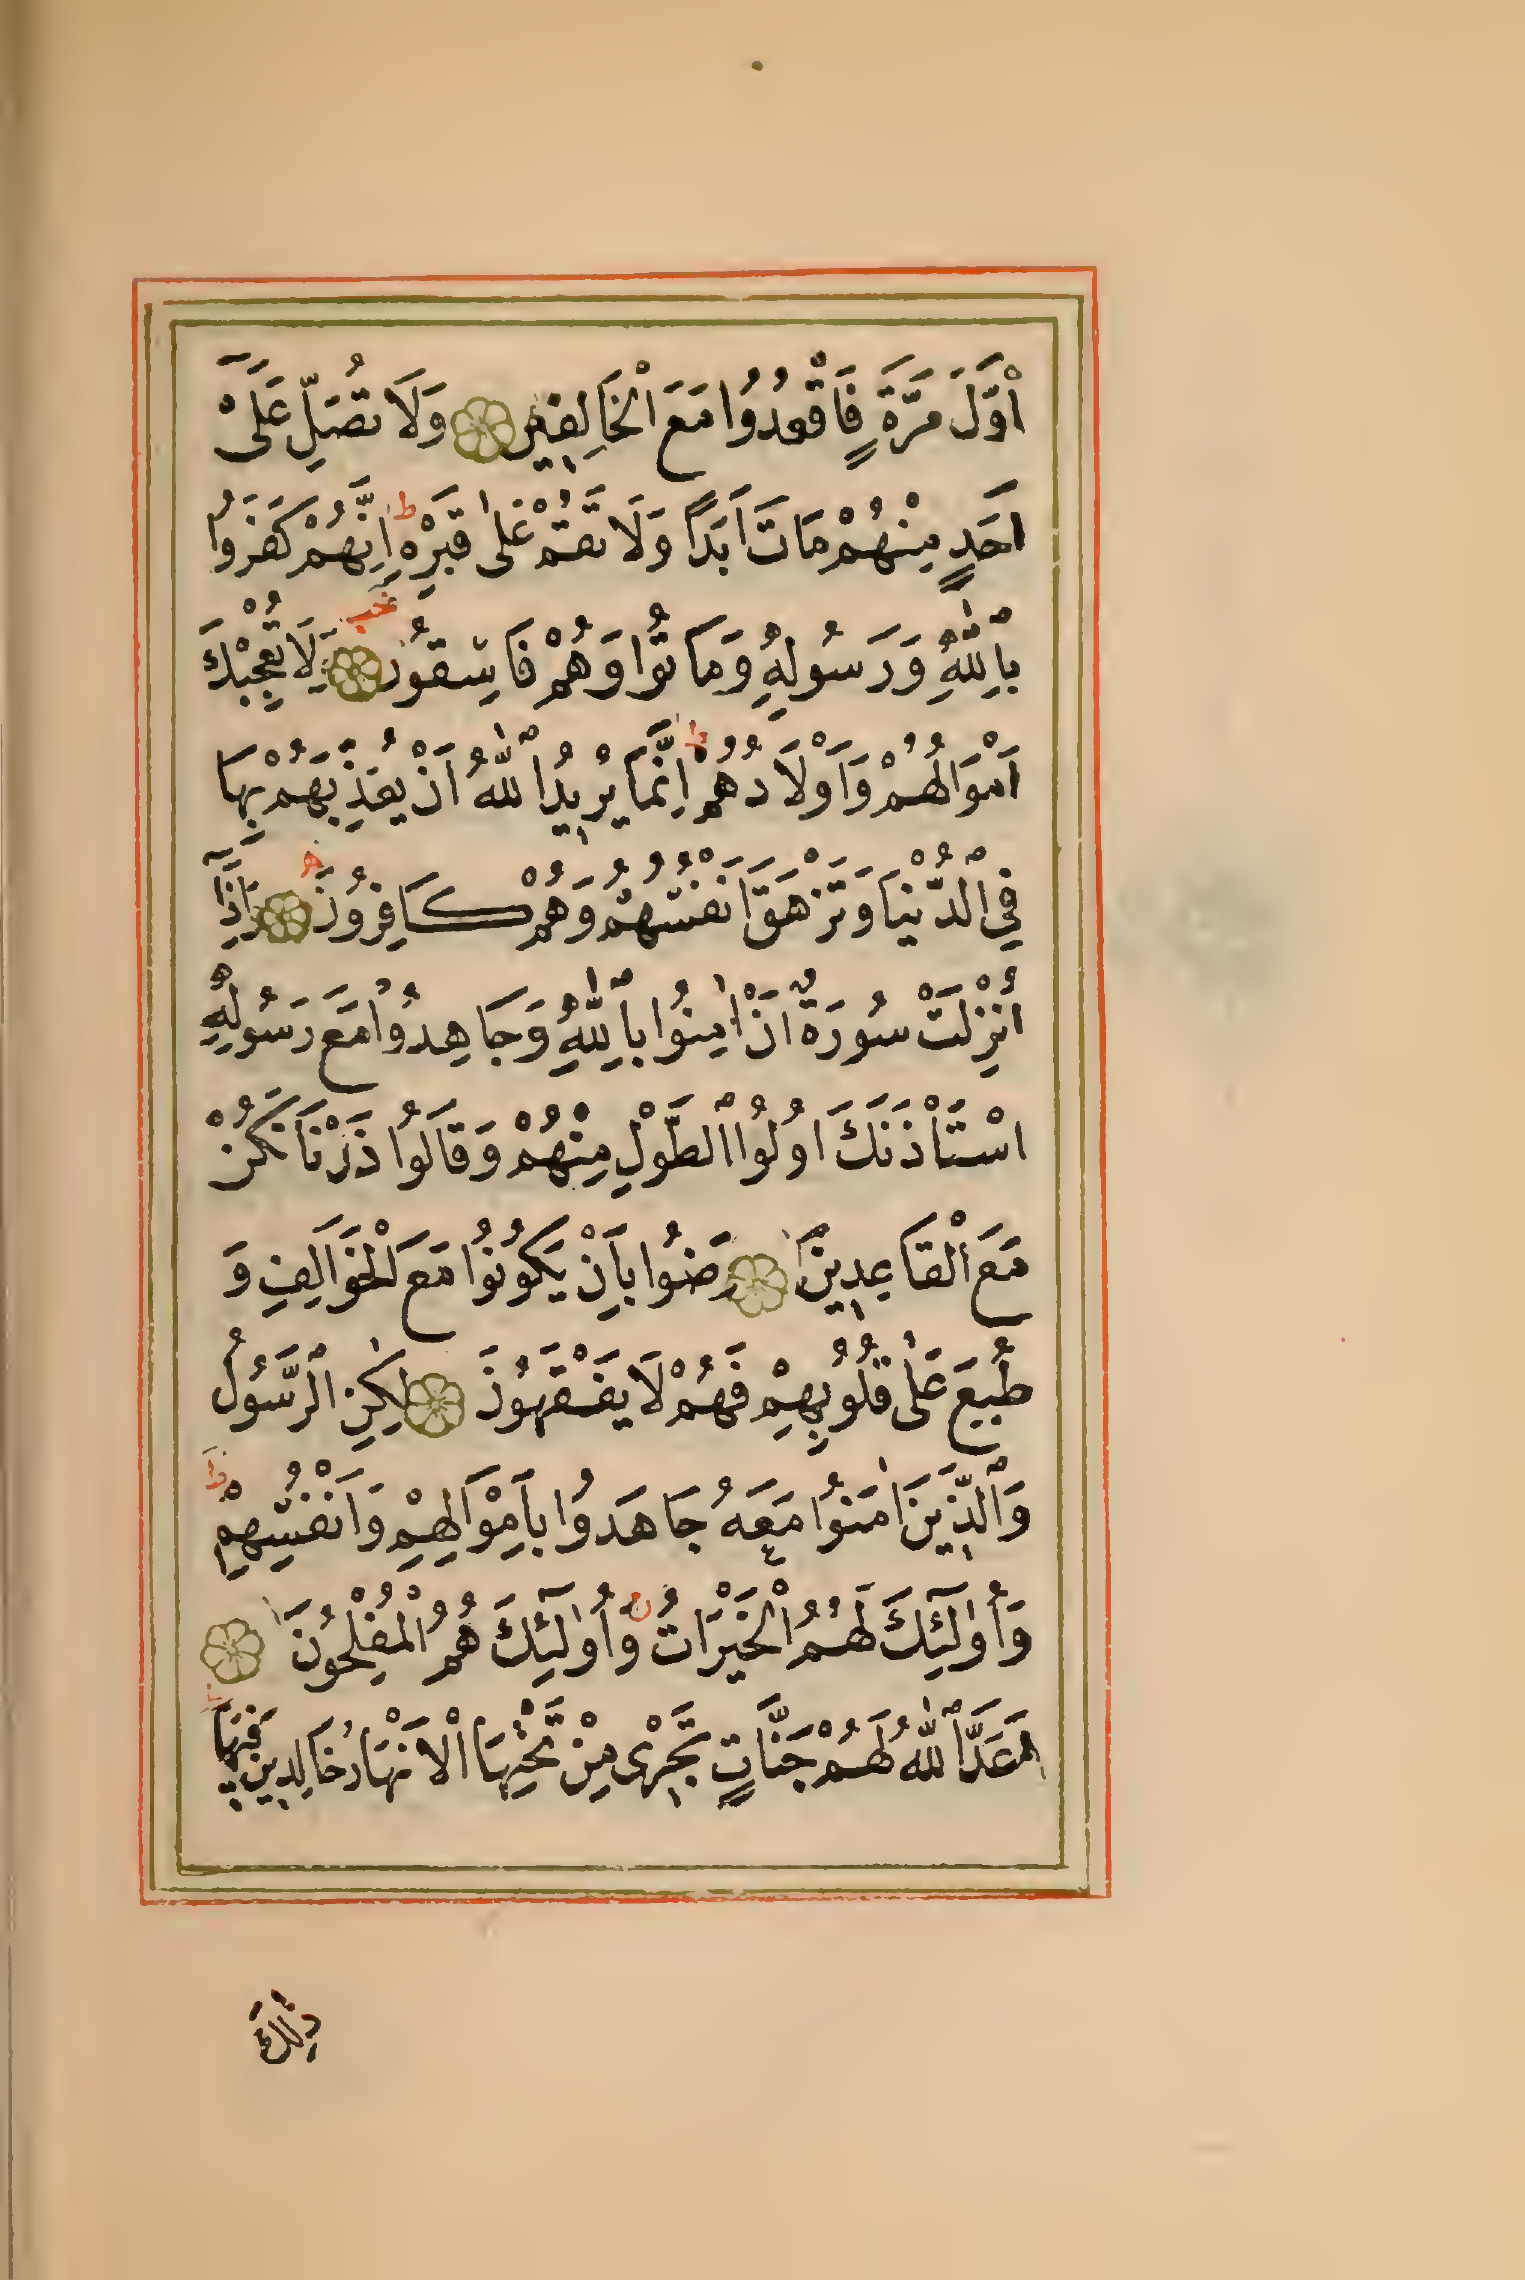 اَوَّلَ مَرَّةٍ فَاقْعُدُوا مَعَ الْخَالِفِينَ وَلَا تُصَلِّ عَلَىٰٓ
اَحَدٍ مِنْهُمْ مَاتَ اَبَدًا وَلَا تَقُمْ عَلٰى قَبْرِهٖ ط اِنَّهُمْ كَفَرُوا
بِاللّٰهِ وَرَسُولِهٖ وَمَاتُوا وَهُمْ فَاسِقُونَ وَلَا تُعْجِبْكَ
اَمْوَالُهُمْ وَاَوْلَادُهُمْ ط اِنَّمَا يُرِيدُ اللّٰهُ اَنْ يُعَذِّبَهُمْ بِهَا
فِي الدُّنْيَا وَتَزْهَقَ اَنْفُسُهُمْ وَهُمْ كَافِرُونَ وَاِذَآ
اُنْزِلَتْ سُورَةٌ اَنْ اٰمِنُوا بِاللّٰهِ وَجَاهِدُوا مَعَ رَسُولِهِ
اسْتَاْذَنَكَ اُولُوا الطَّوْلِ مِنْهُمْ وَقَالُوا ذَرْنَا نَكُنْ
مَعَ الْقَاعِدِينَ رَضُوا بِاَنْ يَكُونُوا مَعَ الْخَوَالِفِ وَ
طُبِعَ عَلٰى قُلُوبِهِمْ فَهُمْ لَا يَفْقَهُونَ لٰكِنِ الرَّسُولُ
وَالَّذِينَ اٰمَنُوا مَعَهُ جَاهَدُوا بِاَمْوَالِهِمْ وَاَنْفُسِهِمْ ط
وَاُولٰٓئِكَ لَهُمُ الْخَيْرَاتُ وَاُولٰٓئِكَ هُمُ الْمُفْلِحُونَ
اَعَدَّ اللّٰهُ لَهُمْ جَنَّاتٍ تَجْرِى مِنْ تَحْتِهَا الْاَنْهَارُ خَالِدِينَ فِيهَا
ذٰلِكَ